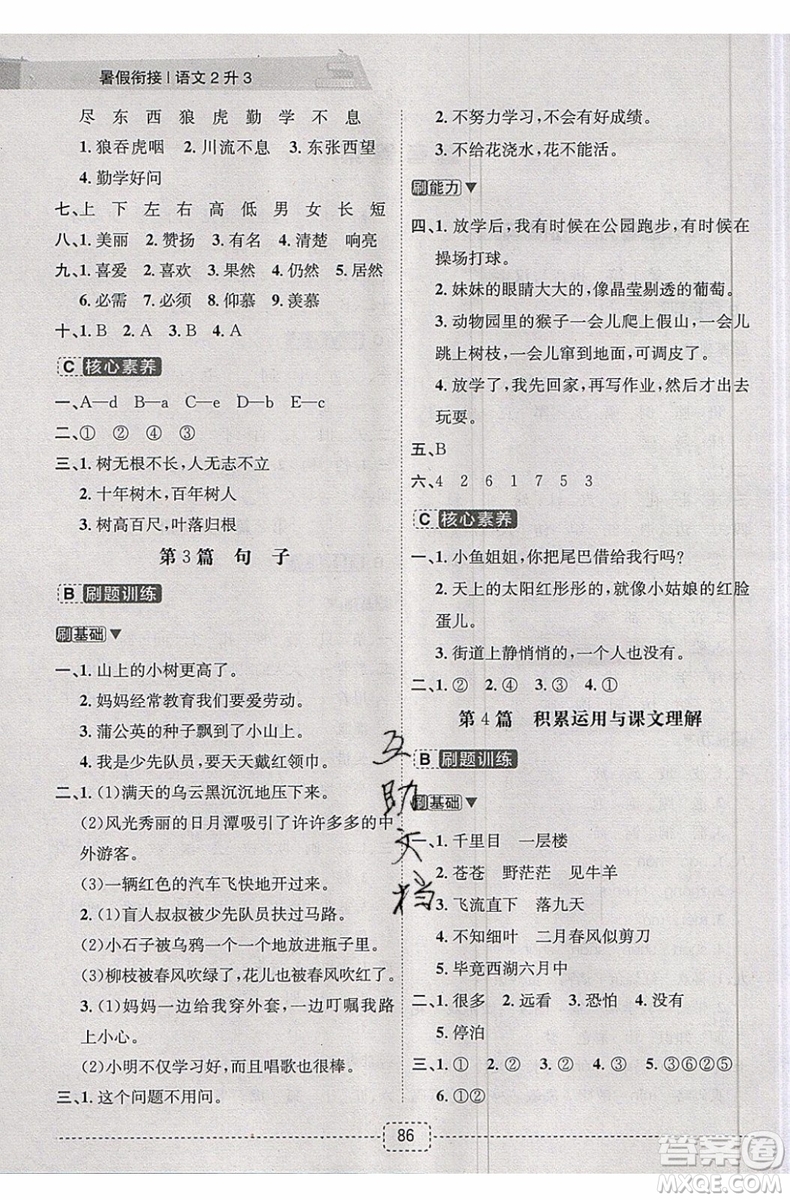 暑假衔接 | 语文 2 升 3
尽 东 西 狼 虎 勤 学 不 息
1. 狼吞虎咽 2. 川流不息 3. 东张西望
4. 勤学好问
七、上 下 左 右 高 低 男 女 长 短
八、1. 美丽 2. 赞扬 3. 有名 4. 清楚 响亮
九、1. 喜爱 2. 喜欢 3. 果然 4. 仍然 5. 居然
6. 必需 7. 必须 8. 仰慕 9. 羡慕
十、1. B 2. A 3. B 4. A
C 核心素养
一、A—d B—a C—b D—e E—c
二、① ② ④ ③
三、1. 树无根不长，人无志不立
2. 十年树木，百年树人
3. 树高百尺，叶落归根
第 3 篇 句 子
B 刷题训练
刷基础
一、1. 山上的小树更高了。
2. 妈妈经常教育我们要爱劳动。
3. 蒲公英的种子飘到了小山上。
4. 我是少先队员，要天天戴红领巾。
二、1. (1)满天的乌云黑沉沉地压下来。
(2)风光秀丽的日月潭吸引了许许多多的中
外游客。
(3)一辆红色的汽车飞快地开过来。
2. (1)盲人叔叔被少先队员扶过马路。
(2)小石子被乌鸦一个一个地放进瓶子里。
(3)柳枝被春风吹绿了，花儿也被春风吹红了。
3. (1)妈妈一边给我穿外套，一边叮嘱我路
上小心。
(2)小明不仅学习好，而且唱歌也很棒。
三、1. 这个问题不用问。
2. 不努力学习，不会有好成绩。
3. 不给花浇水，花不能活。
刷能力
四、1. 放学后，我有时候在公园跑步，有时候在
操场打球。
2. 妹妹的眼睛大大的，像晶莹剔透的葡萄。
3. 动物园里的猴子一会儿爬上假山，一会儿
跳上树枝，一会儿窜到地面，可调皮了。
4. 放学了，我先回家，再写作业，然后出去
玩耍。
五、B
六、4 2 6 1 7 5 3
C 核心素养
一、1. 小鱼姐姐，你把尾巴借给我行吗？
2. 天上的太阳红彤彤的，就像小姑娘的红脸
蛋儿。
3. 街道上静悄悄的，一个人也没有。
二、1. ① 2. ④ 3. ② 4. ①
第 4 篇 积累运用与课文理解
B 刷题训练
刷基础
一、1. 千里目 一层楼
2. 苍苍 野茫茫 见牛羊
3. 飞流直下 落九天
4. 不知细叶 二月春风似剪刀
5. 毕竟西湖六月中
二、1. 很多 2. 远看 3. 恐怕 4. 好像
5. 停泊
三、1. ① 2. ② 3. ② 4. ③ 5. ③⑥②⑤
6. ①②
互
助
文
档
86
答案圈
MXQE.COM